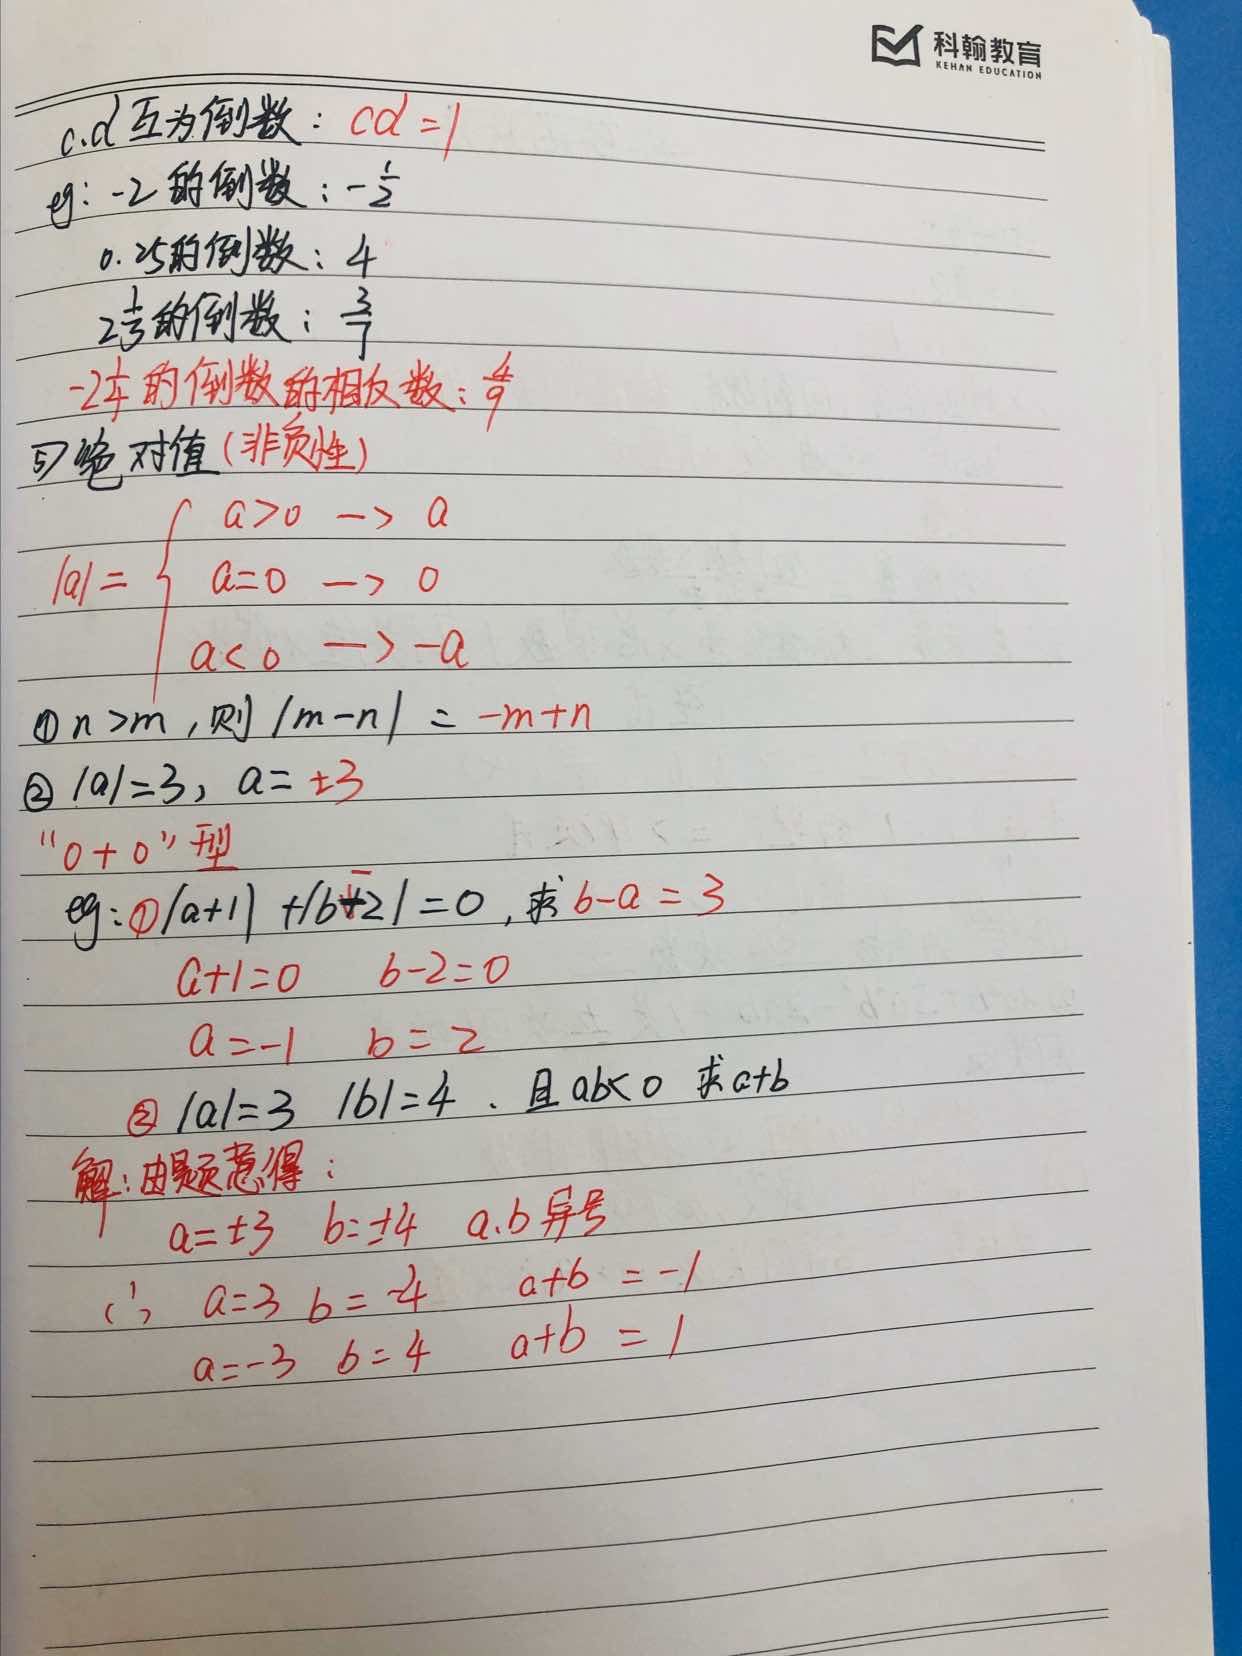 科翰教育
KEHAN EDUCATION
c.d互为倒数: cd=1
eg: -2的倒数: -1/2
0.25的倒数: 4
2 1/3的倒数: 3/7
-2 1/4的倒数的相反数: 4/9
5)绝对值(非负性)
a>0 -> a
|a|={ a=0 -> 0
a<0 -> -a
① n>m,则|m-n| = -m+n
② |a|=3, a=±3
"0+0"型
eg:①|a+1|+|b-2|=0,求b-a=3
a+1=0 b-2=0
a=-1 b=2
② |a|=3 |b|=4. 且ab<0 求a+b
解:由题意得:
a=±3 b=±4 a.b异号
a=3 b=-4 a+b=-1
a=-3 b=4 a+b=1